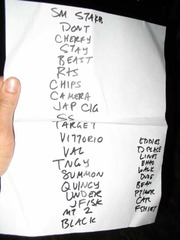 SM STAKE
DONT
CHERRY
STAY
BEAST
RTS
CHIPS
CAMERA
JAP CIG
SS
TARGET
VITTORIO
VAL
TNGY
SUMMON
QUINCY
UNDER
JFISK
MT 2
BLACK
EDDIES
DPLACE
LINES
EVIL
WALK
DUST
BEAT
PTIGER
CAR
FSHIRT